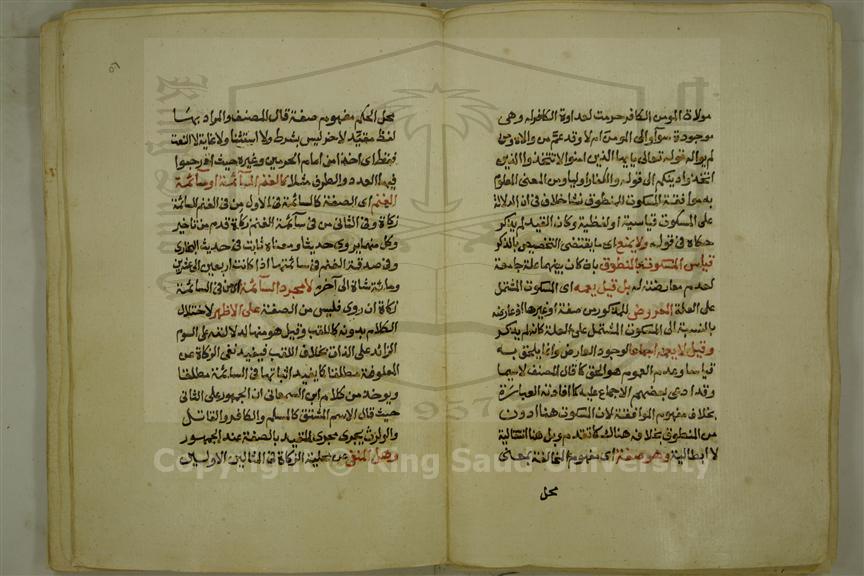 موالاة المومن الكافر حرمت لعداوة الكافر له وهي
موجودة سوآ والى المومن ام لا وقد عم من والاه ومن
لم يواله قوله تعالى يايها الذين امنوا لا تتخذوا الذين
اتخذوا دينكم الى قوله والكفار اوليا ومن المعنى المعلوم
به موافقة المسكوت للمنطوق نشا خلاف في ان الدلالة
على المسكوت قياسية او لفظية وكان القيد لم يذكر
حكاه في قوله ولا يمنع اى ما يقتضى التخصيص بالذكر
قياس المسكوت بالمنطوق بان كان بينهما علة جامعة
لعدم معارضته له بل قيل يعمه اى المسكوت المشتمل
على العلة المعروض للمذكور من صفة او غيرها اذ عارضه
بالنسبة الى المسكوت المشتمل على العلة كانه لم يذكر
وقيل لا يعمه اجماعا لوجود العارض وانما يلحق به
قياسا وعدم العموم هو الحق كما قال المصنف لا سيما
وقد ادعى بعضهم الاجماع عليه كما افادته العبارة
بخلاف مفهوم الموافقة لان المسكوت هنا ادون
من المنطوق بخلافه هناك كما تقدم وبل هنا انتقالية
لا ابطالية وهو صفة اى مفهوم المخالفة بمعنى
محل
محل الحكم مفهوم صفة قال المصنف والمراد بها
لفظ مقيد لاخر ليس بشرط ولا استثنا ولا غاية لا النعت
فقط اى اخذا من امام الحرمين وغيره حيث ادرجوا
فيها العدد والظرف مثلا كالغنم السآئمة او سآئمة
الغنم اى الصفة كالسائمة في الاول من في الغنم السائمة
زكاة وفي الثانى من في سآئمة الغنم زكاة قدم من تاخير
وكل منهما يروى حديثا ومعناه ثابت في حديث البخارى
وفي صدقة الغنم في سائمتها اذا كانت اربعين الى عشرين
وماية شاة الى آخره لا مجرد السآئمة اى من في السائمة
زكاة ان روى فليس من الصفة على الاظهر لاختلال
الكلام بدونه كاللقب وقيل هو منها لدلالته على السوم
الزائد على الذات بخلاف اللقب فيفيد نفى الزكاة عن
المعلوفة مطلقا كما يفيد اثباتها في السائمة مطلقا
ويوخذ من كلام ابن السمعانى ان الجمهور على الثانى
حيث قال الاسم المشتق كالمسلم والكافر والقاتل
والوارث يجرى مجرى المقيد بالصفة عند الجمهور
وهل المنفى عن محلية الزكاة في المثالين الاولين
Copyright © King Saud University
1957